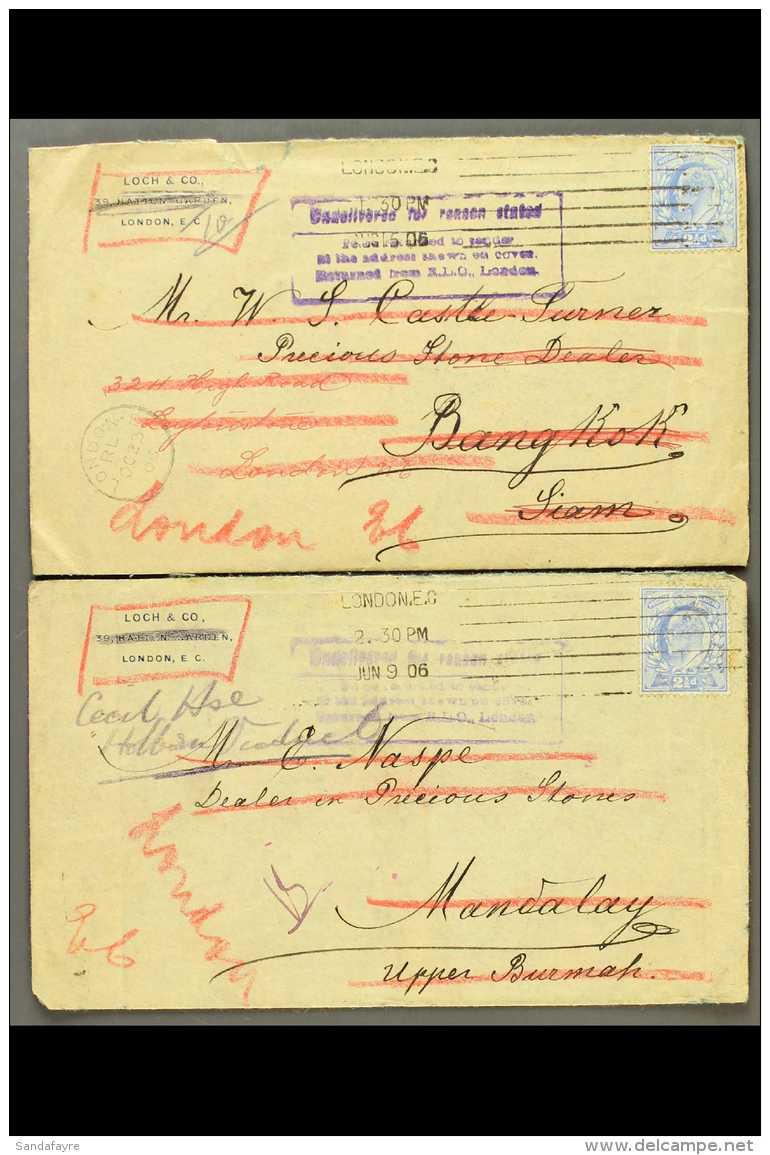 LOCH & CO.,
39, HATTON GARDEN,
LONDON, E.C.
10
LONDON.E.C
1. 30 PM
06
Undelivered for reason stated
to be returned to sender
at the address shewn on cover.
Returned from R.L.O., London.
2½d
Mr. W. S. Castle-Turner
Precious Stone Dealer
324 High Road
Bangkok
London
Siam
LONDON
RL
OC 23
London EC
LOCH & CO,
39, HATTON GARDEN,
LONDON, E.C.
LONDON.E.C
2. 30 PM
JUN 9 06
Undelivered for reason stated
Returned from R.L.O., London
2½d
Cecil Hse
Holborn Viaduct
Mr. E. Naspe
Dealer in Precious Stones
London
EC
Mandalay
Upper Burmah.
Sandafayre
delcampe.net